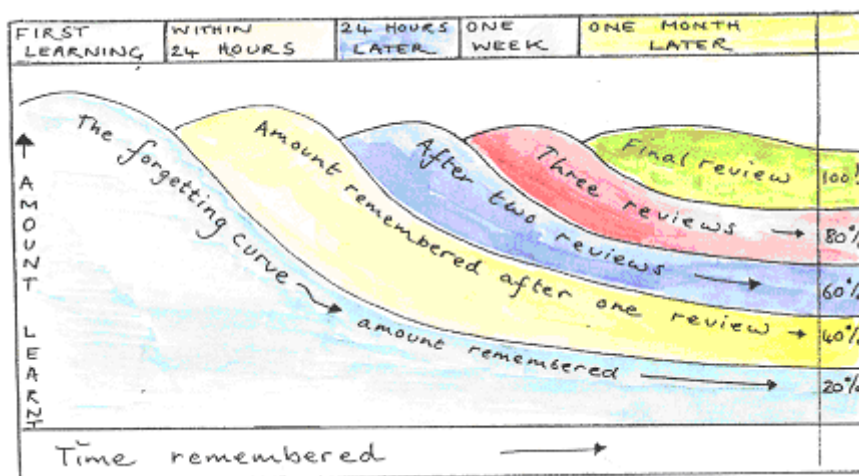 FIRST LEARNING
WITHIN 24 HOURS
24 HOURS LATER
ONE WEEK
ONE MONTH LATER
The forgetting curve → amount remembered →
Amount remembered after one review →
After two reviews →
Three reviews →
Final review
100%
80%
60%
40%
20%
↑ AMOUNT LEARNT
Time remembered →